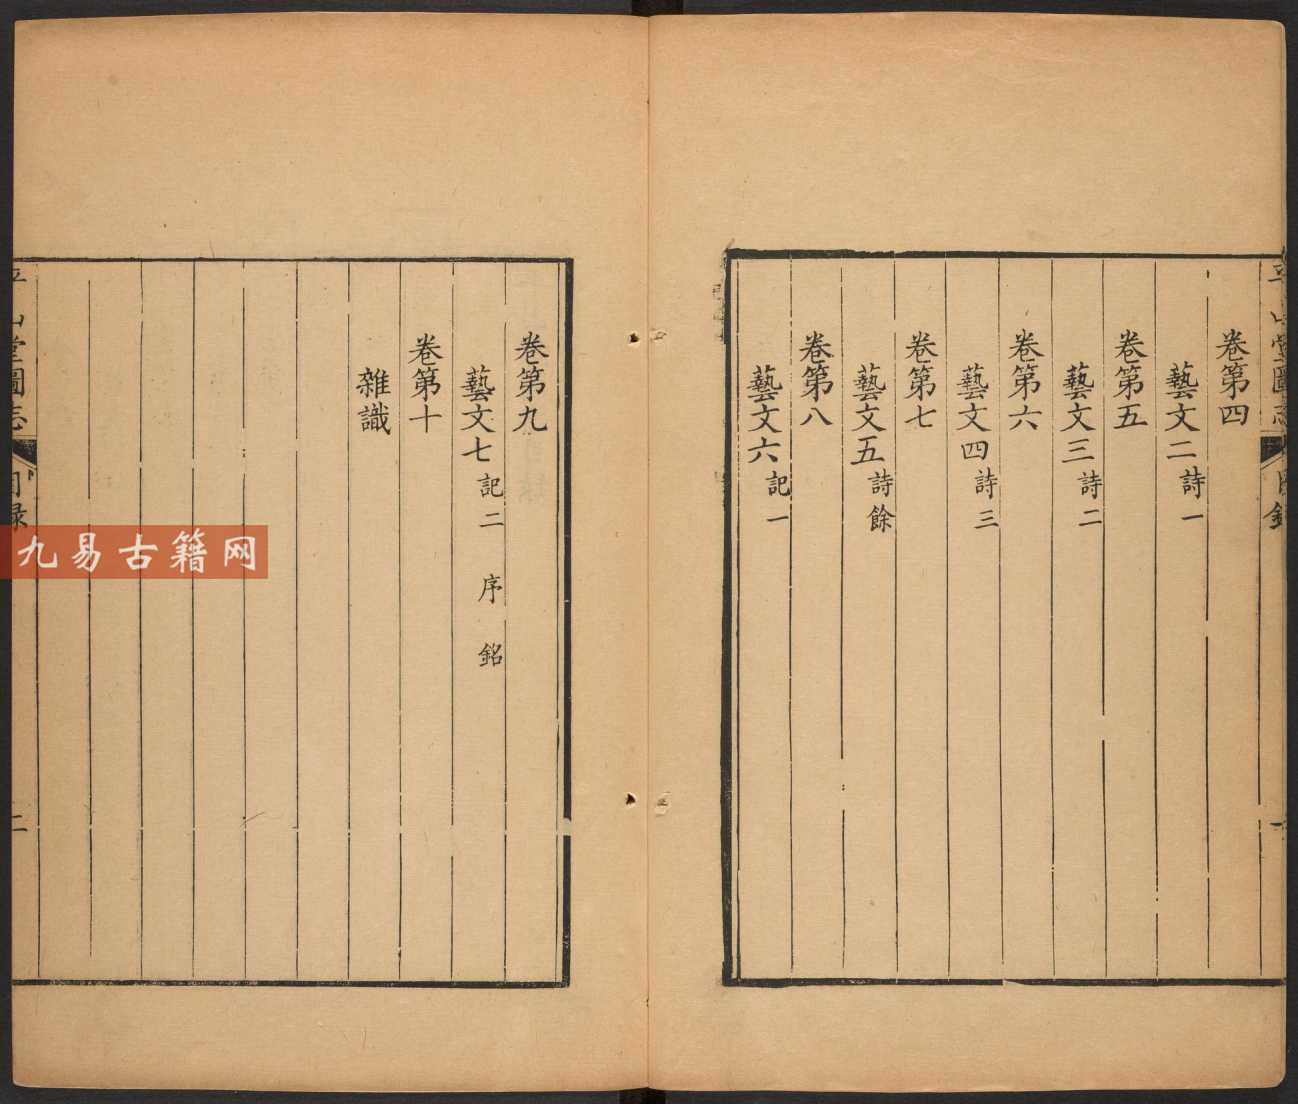 卷第四
藝文二 詩一
卷第五
藝文三 詩二
卷第六
藝文四 詩三
卷第七
藝文五 詩餘
卷第八
藝文六 記一
卷第九
藝文七 記二 序 銘
卷第十
雜識
平山堂圖志 目録 二
九易古籍网